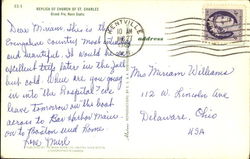 REPLICA OF CHURCH OF ST. CHARLES
Grand Pre, Nova Scotia
Dear Miriam, this is the
Evangeline country most
and beautiful. It would be an
excellent trip later in the fall
but cold. When are you going
on into the Hospital? We
leave tomorrow in the boat
across to Bar Harbor Maine
on to Boston and Home
Love
KENTVILLE
10 AM
address
Miss Miriam Williams
112 W. Lincoln Ave
Delaware, Ohio
USA